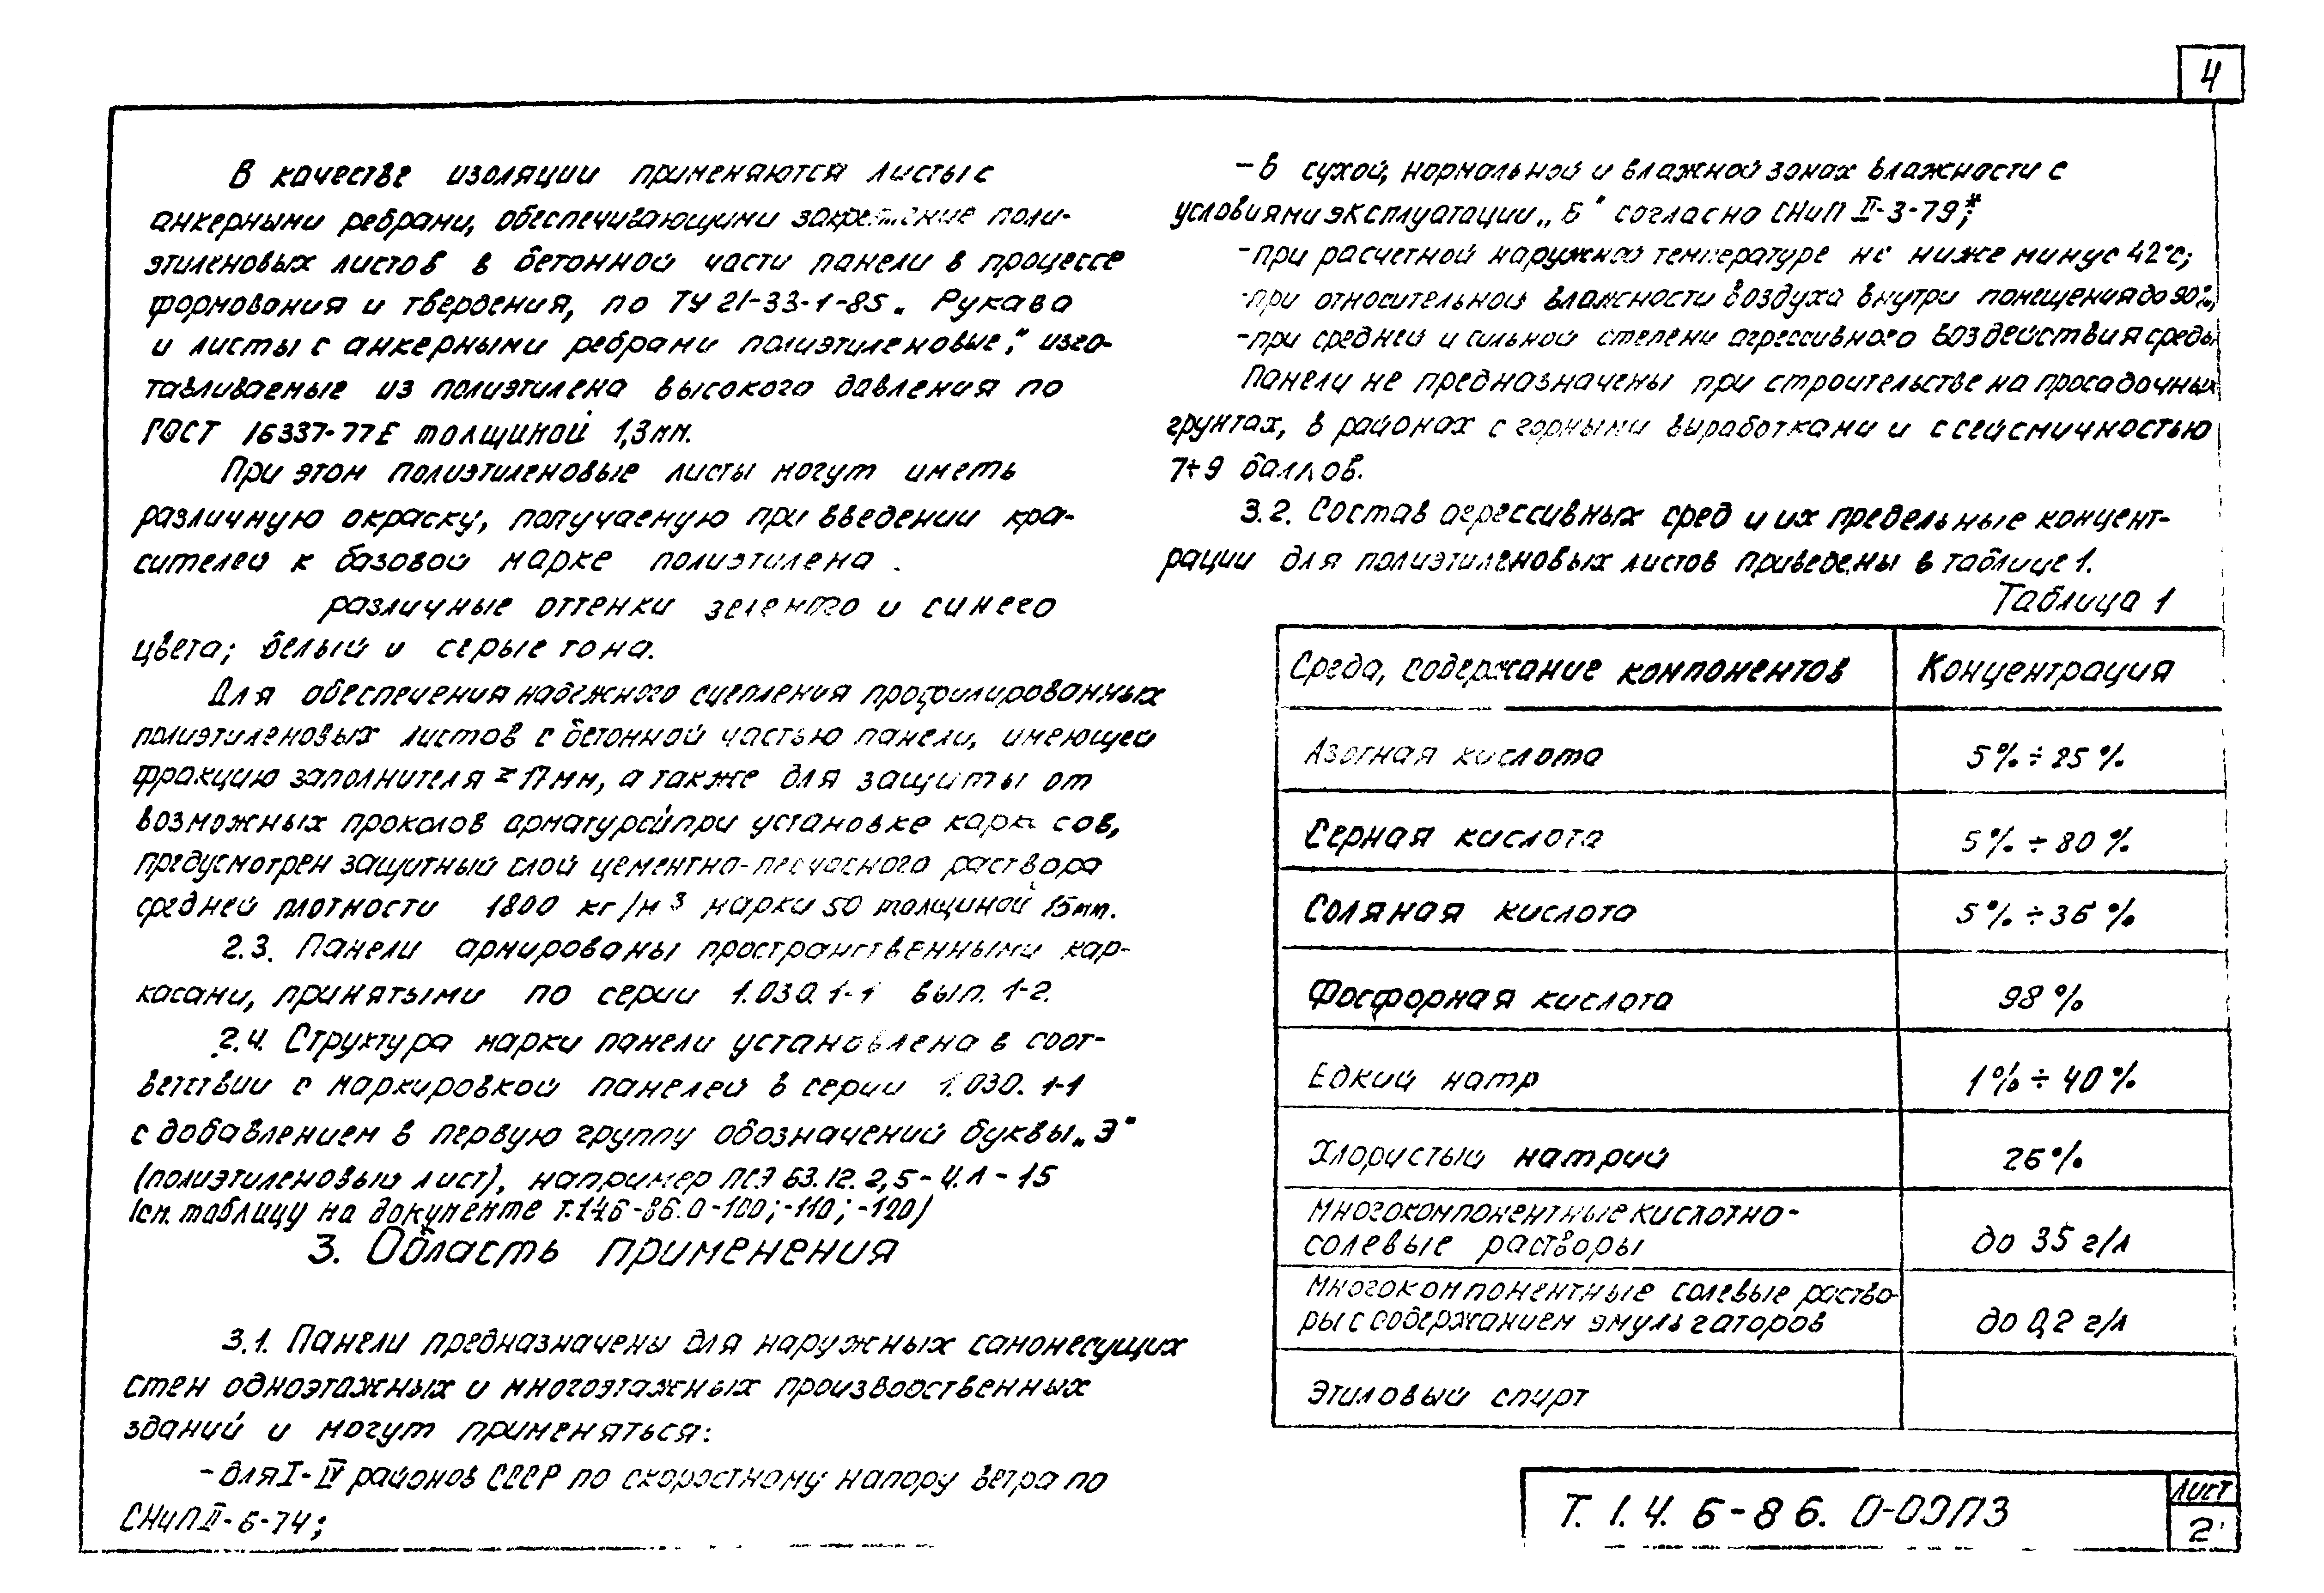 4
В качестве изоляции применяются листы с
анкерными ребрами, обеспечивающими закрепление поли-
этиленовых листов в бетонной части панели в процессе
формования и твердения, по ТУ 21-33-1-85 „Рукава
и листы с анкерными ребрами полиэтиленовые", изго-
тавливаемые из полиэтилена высокого давления по
ГОСТ 16337-77Е толщиной 1,3мм.
При этом полиэтиленовые листы могут иметь
различную окраску, получаемую при введении кра-
сителей к базовой марке полиэтилена .
различные оттенки зеленого и синего
цвета; белый и серые тона.
Для обеспечения надежного сцепления профилированных
полиэтиленовых листов с бетонной частью панели, имеющей
фракцию заполнителя ≥ 17мм, а также для защиты от
возможных проколов арматурой при установке каркасов,
предусмотрен защитный слой цементно-песчаного раствора
средней плотности 1800 кг/м³ марки 50 толщиной 15мм.
2.3. Панели армированы пространственными кар-
касами, принятыми по серии 1.030.1-1 вып. 1-2.
2.4. Структура марки панели установлена в соот-
ветствии с маркировкой панелей в серии 1.030.1-1
с добавлением в первую группу обозначений буквы „Э"
(полиэтиленовый лист), например ПСЭ 63.12.2,5-4.Л-15
(см. таблицу на документе Т.1.4.6-86.0-100; -110; -120)
3. Область применения
3.1. Панели предназначены для наружных самонесущих
стен одноэтажных и многоэтажных производственных
зданий и могут применяться:
- для I-IV районов СССР по скоростному напору ветра по
СНиП II-6-74;
- в сухой, нормальной и влажной зонах влажности с
условиями эксплуатации „Б" согласно СНиП II-3-79*;
- при расчетной наружной температуре не ниже минус 42°С;
- при относительной влажности воздуха внутри помещения до 90%;
- при средней и сильной степени агрессивного воздействия среды
Панели не предназначены при строительстве на просадочных
грунтах, в районах с горными выработками и с сейсмичностью
7÷9 баллов.
3.2. Состав агрессивных сред и их предельные концент-
рации для полиэтиленовых листов приведены в таблице 1.
Таблица 1
Среда, содержание компонентов Концентрация
Азотная кислота 5% ÷ 25%
Серная кислота 5% ÷ 80%
Соляная кислота 5% ÷ 36%
Фосфорная кислота 98%
Едкий натр 1% ÷ 40%
Хлористый натрий 26%
Многокомпонентные кислотно-
солевые растворы до 35 г/л
Многокомпонентные солевые раство-
ры с содержанием эмульгаторов до 0,2 г/л
Этиловый спирт
Т. 1.4. 6-86. 0-0ЭПЗ
Лист
2